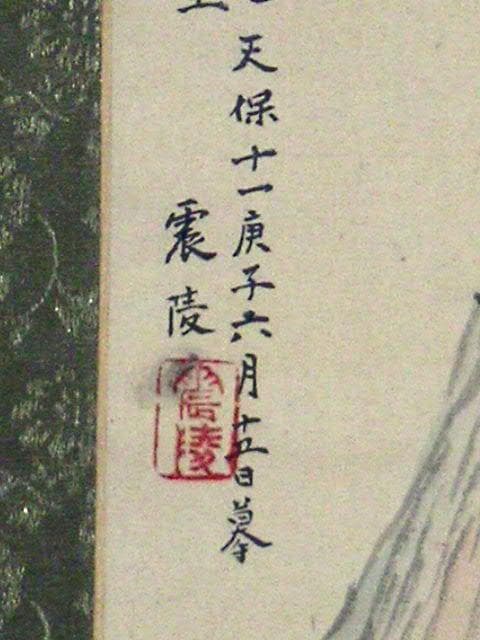 天保十一庚子六月十五日摹
震陵
震陵